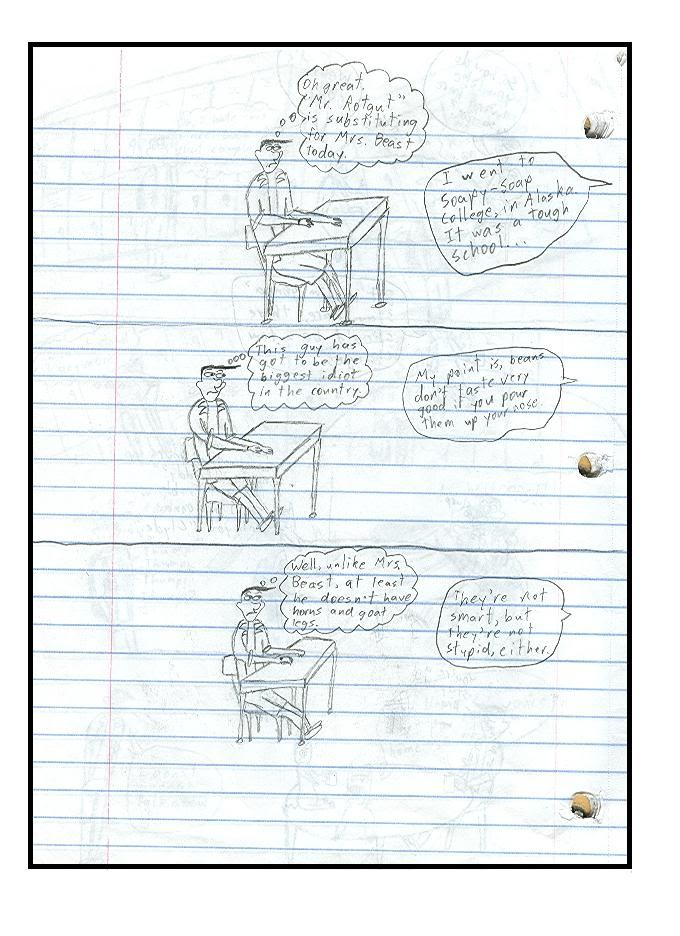 Oh great.
"Mr. Rotgut"
is substituting
for Mrs. Beast
today.
I went to
Soapy-Soap
College, in Alaska.
It was a tough
school...
This guy has
got to be the
biggest idiot
in the country.
My point is, beans
don't taste very
good if you pour
them up your nose.
Well, unlike Mrs.
Beast, at least
he doesn't have
horns and goat
legs.
They're not
smart, but
they're not
stupid, either.